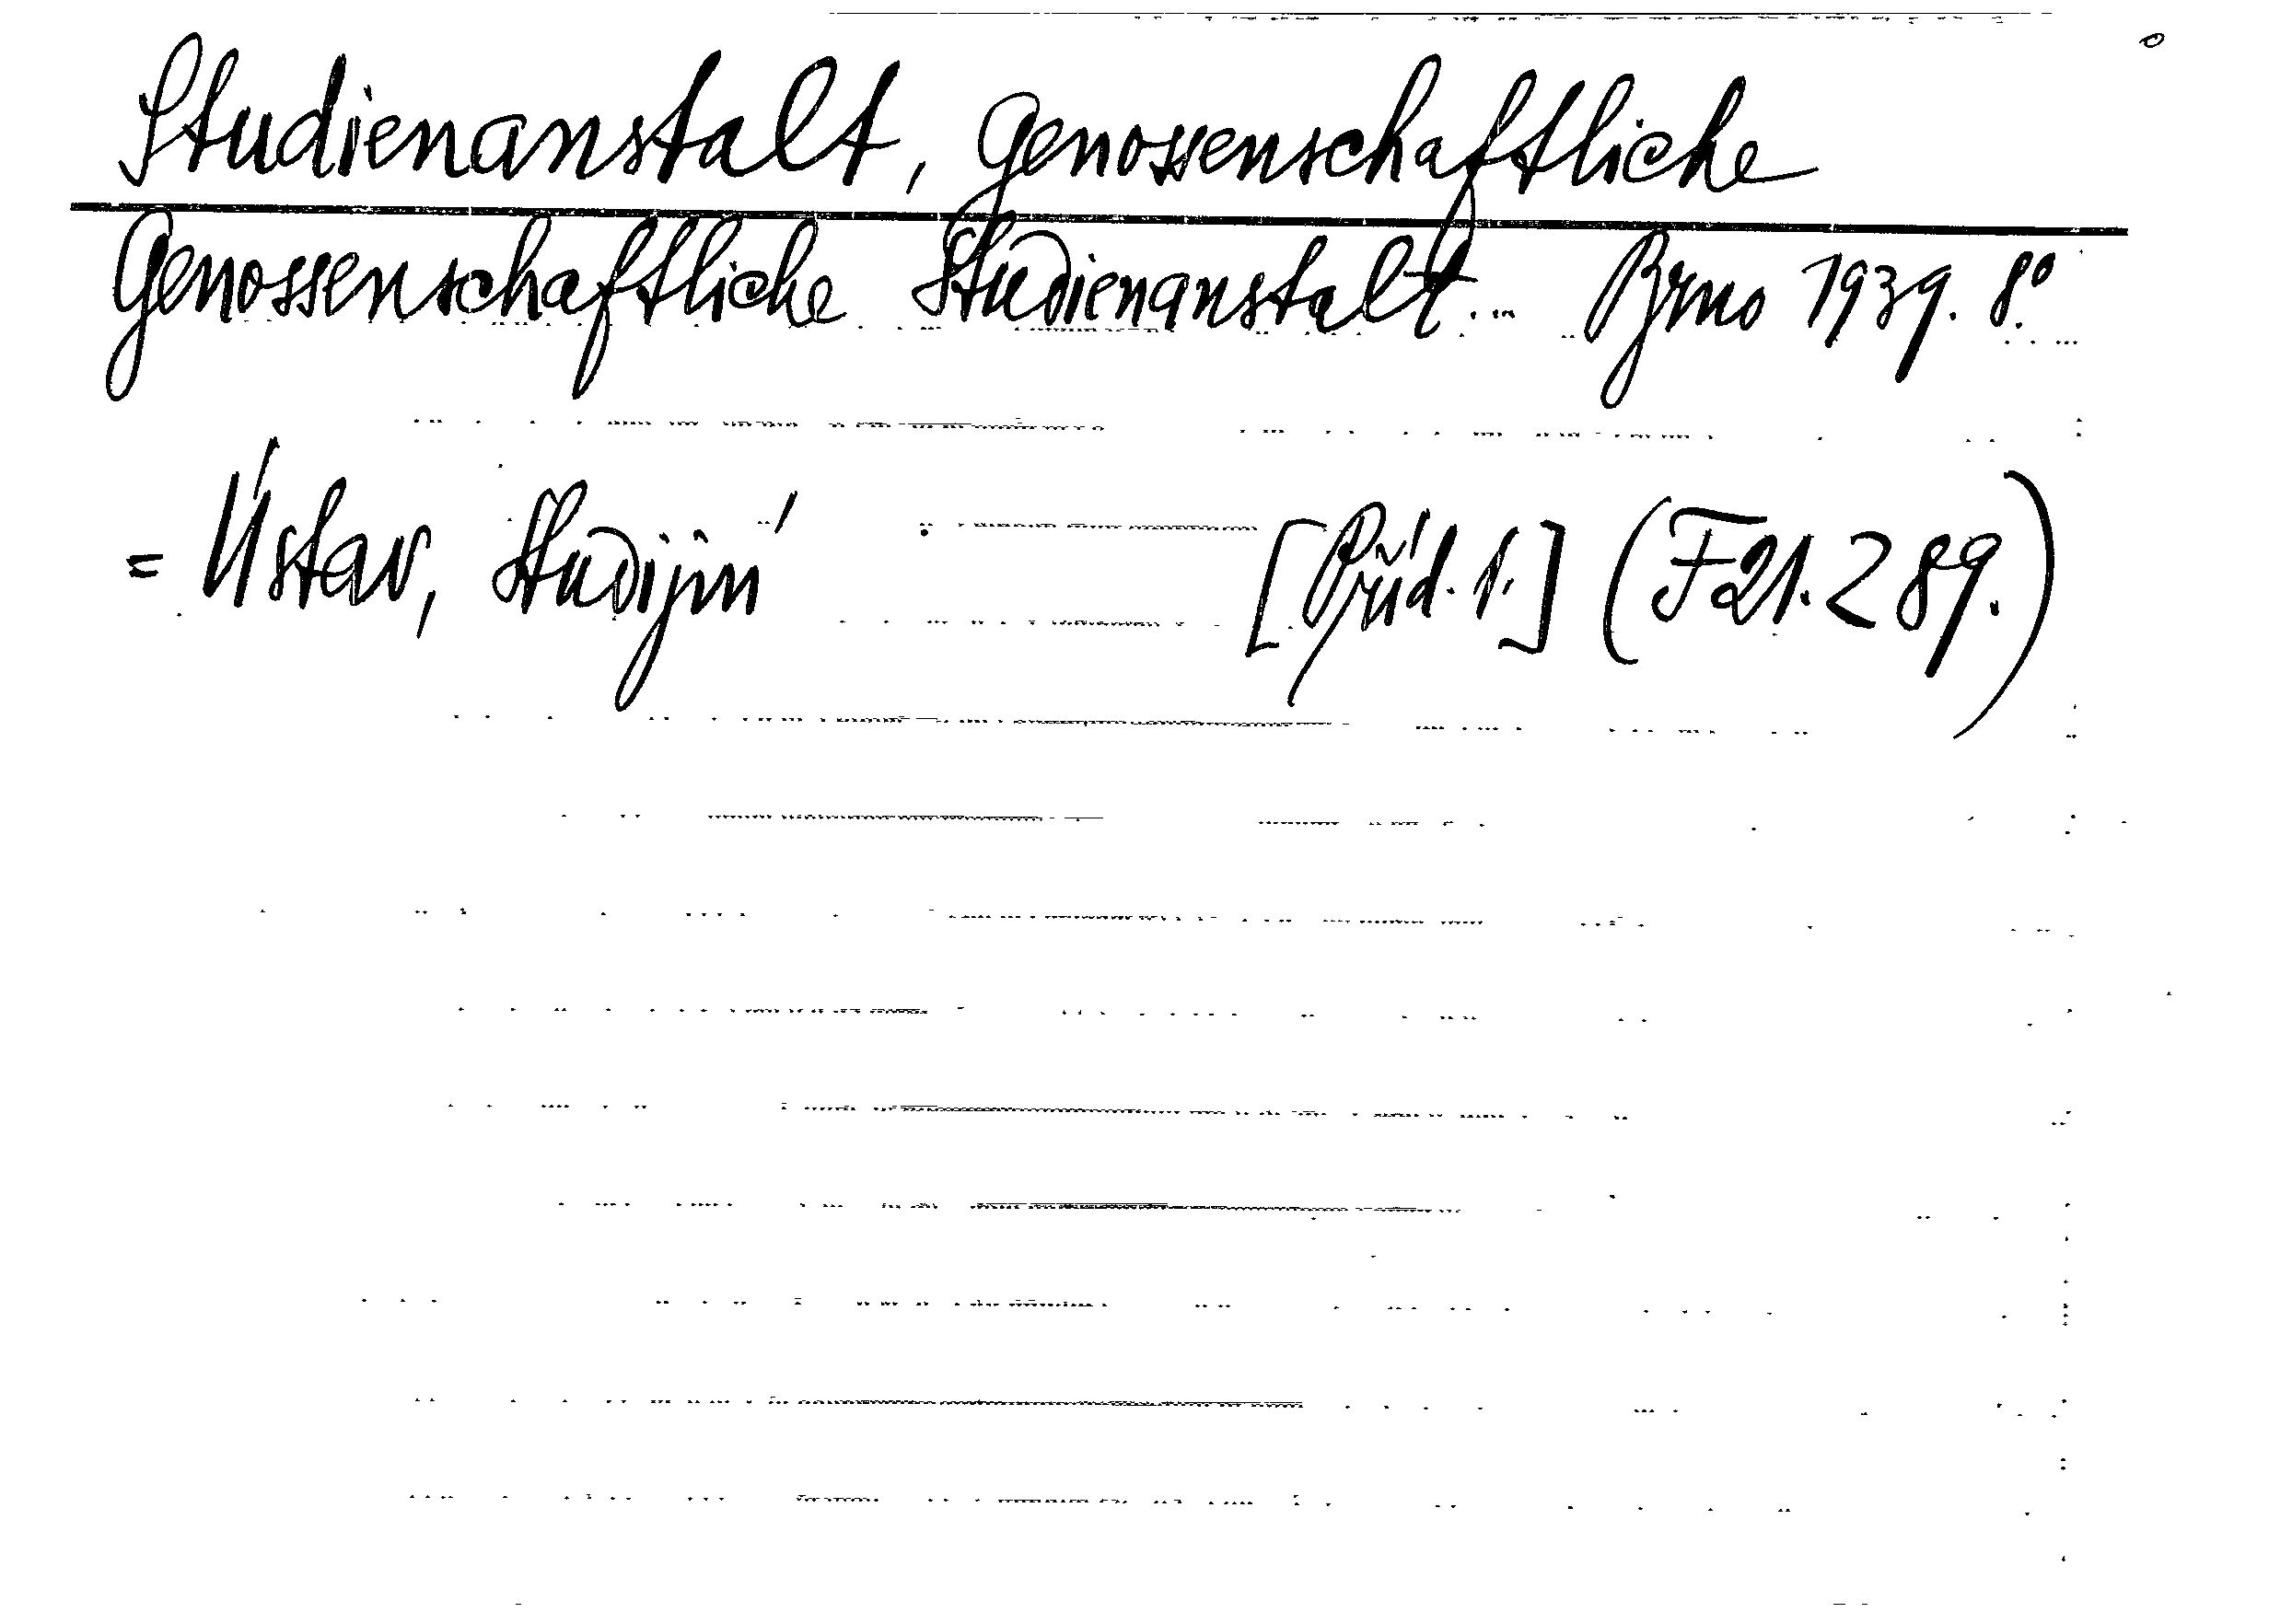 Studienanstalt, Genossenschaftliche
Genossenschaftliche Studienanstalt... Brno 1939. 8°.
= Ústav, Studijní [Příd. 1.] (F21.289.)